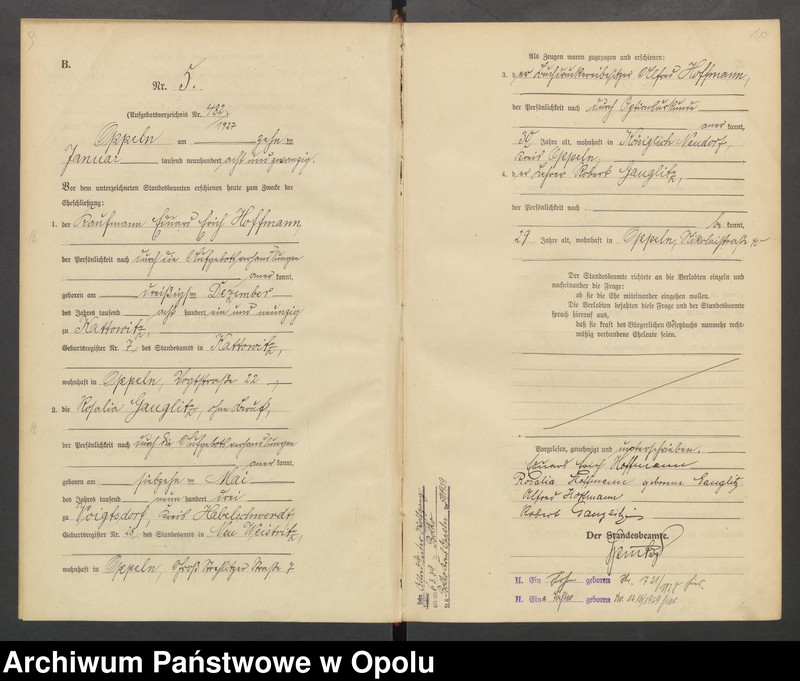 B.
Nr. 5.
(Aufgebotsverzeichnis Nr. 482/1927
Oppeln am zehnten
Januar tausend neunhundert acht und zwanzig.
Vor dem unterzeichneten Standesbeamten erschienen heute zum Zwecke der
Eheschließung:
1. der Kaufmann Eduard Erich Hoffmann
der Persönlichkeit nach durch die Aufgebotsverhandlungen
anerkannt,
geboren am dreißigsten Dezember
des Jahres tausend acht hundert ein und neunzig
zu Kattowitz,
Geburtsregister Nr. 7, des Standesamts in Kattowitz,
wohnhaft in Oppeln, Vogtstraße 22,
2. die Rosalia Gauglitz, ohne Beruf,
der Persönlichkeit nach durch die Aufgebotsverhandlungen
anerkannt,
geboren am siebzehnten Mai
des Jahres tausend neun hundert drei
zu Voigtsdorf, Kreis Habelschwerdt
Geburtsregister Nr. 28, des Standesamts in Neu Weistritz,
wohnhaft in Oppeln, Groß Strehlitzer Straße 7
10
Als Zeugen waren zugezogen und erschienen:
3. der Buchdruckereibesitzer Alfred Hoffmann,
der Persönlichkeit nach durch
anerkannt,
30 Jahre alt, wohnhaft in Königlich Neudorf,
Kreis Oppeln,
4. der Lehrer Robert Gauglitz,
der Persönlichkeit nach
bekannt,
29 Jahre alt, wohnhaft in Oppeln, Nikolaistraße
Der Standesbeamte richtete an die Verlobten einzeln und
nacheinander die Frage:
ob sie die Ehe miteinander eingehen wollen.
Die Verlobten bejahten diese Frage und der Standesbeamte
sprach hierauf aus,
daß sie kraft des Bürgerlichen Gesetzbuchs nunmehr recht-
mäßig verbundene Eheleute seien.
Vorgelesen, genehmigt und unterschrieben.
Eduard Erich Hoffmann
Rosalia Hoffmann geborene Gauglitz
Alfred Hoffmann
Robert Gauglitz
Der Standesbeamte.
H. Ein Sohn geboren Nr. 721/
H. Eine Tochter geboren Nr.
Archiwum Państwowe w Opolu